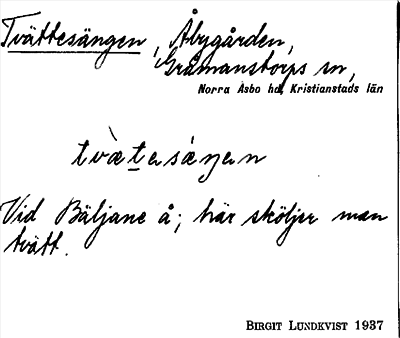 Tvättesängen, Åbygården,
Gråmanstorps sn,
Norra Åsbo hd, Kristianstads län
tvæ̀tasæŋan
Vid Bäljane å; här sköljer man
tvätt.
BIRGIT LUNDKVIST 1937